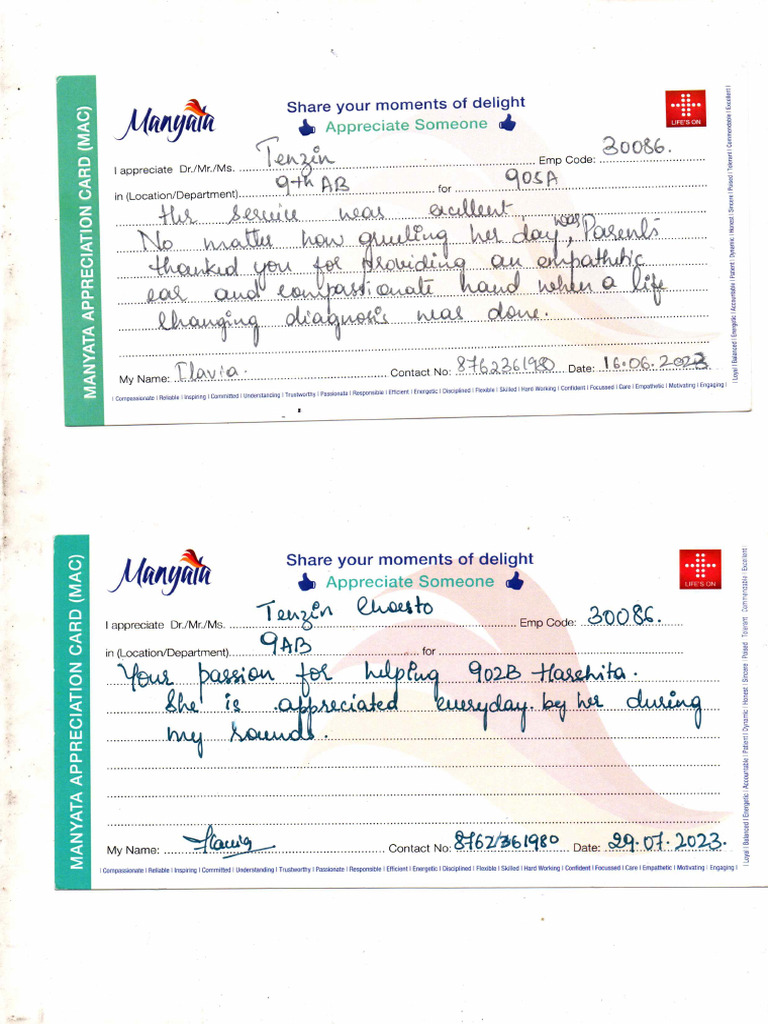 MANYATA APPRECIATION CARD (MAC)
Manyata
Share your moments of delight
Appreciate Someone
LIFE'S ON
I appreciate Dr./Mr./Ms. Tenzin Emp Code: 30086.
in (Location/Department) 9th AB for 905A
Her service was excellent.
No matter how grueling her day was, Parents
thanked you for providing an empathetic
ear and compassionate hand when a life
changing diagnosis was done.
My Name: Flavia. Contact No: 8762361980 Date: 16.06.2023
| Compassionate | Reliable | Inspiring | Committed | Understanding | Trustworthy | Passionate | Responsible | Efficient | Energetic | Disciplined | Flexible | Skilled | Hard Working | Confident | Focussed | Care | Empathetic | Motivating | Engaging |
| Loyal | Balanced | Energetic | Accountable | Patient | Dynamic | Honest | Sincere | Poised | Tolerant | Commendable | Excellent |
MANYATA APPRECIATION CARD (MAC)
Manyata
Share your moments of delight
Appreciate Someone
LIFE'S ON
I appreciate Dr./Mr./Ms. Tenzin Choesto Emp Code: 30086.
in (Location/Department) 9AB for
Your passion for helping 902B Harshita.
She is appreciated everyday by her during
my rounds.
My Name: Flavia Contact No: 8762361980 Date: 29.07.2023.
| Compassionate | Reliable | Inspiring | Committed | Understanding | Trustworthy | Passionate | Responsible | Efficient | Energetic | Disciplined | Flexible | Skilled | Hard Working | Confident | Focussed | Care | Empathetic | Motivating | Engaging |
| Loyal | Balanced | Energetic | Accountable | Patient | Dynamic | Honest | Sincere | Poised | Tolerant | Commendable | Excellent |